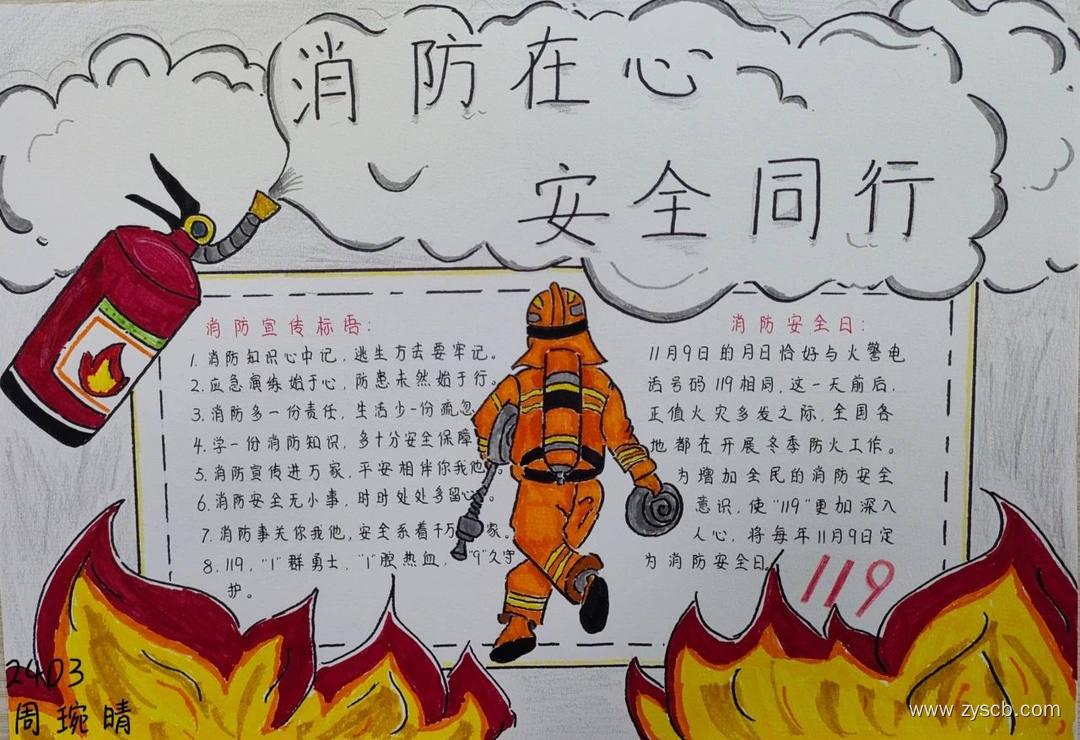 消防在心
安全同行
消防宣传标语:
1. 消防知识心中记，逃生方法要牢记。
2. 应急演练始于心，防患未然始于行。
3. 消防多一份责任，生活少一份疏忽
4. 学一份消防知识，多十分安全保障
5. 消防宣传进万家，平安相伴你我他。
6. 消防安全无小事，时时处处多留心。
7. 消防事关你我他，安全系着千万家。
8. 119，"1"群勇士，"1"腔热血，"9"久守
护。
消防安全日:
11月9日的月日恰好与火警电
话号码119相同，这一天前后，
正值火灾多发之际，全国各
地都在开展冬季防火工作。
为增加全民的消防安全
意识，使"119"更加深入
人心，将每年11月9日定
为消防安全日。
119
2403
周琬晴
www.zyscb.com